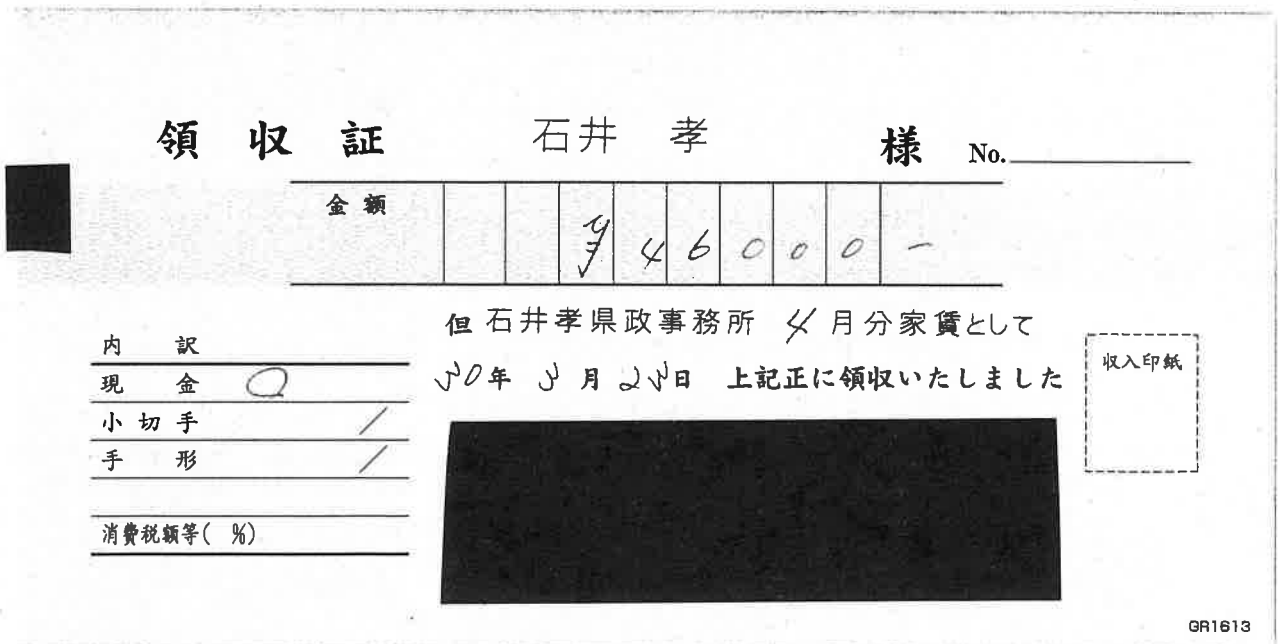 領収証 石井 孝 様 No.
金額 ¥46000-
但 石井孝県政事務所 4月分家賃として
30年 3月 23日 上記正に領収いたしました
内訳
現金 ○
小切手 /
手形 /
消費税額等( %)
収入印紙
GR1613